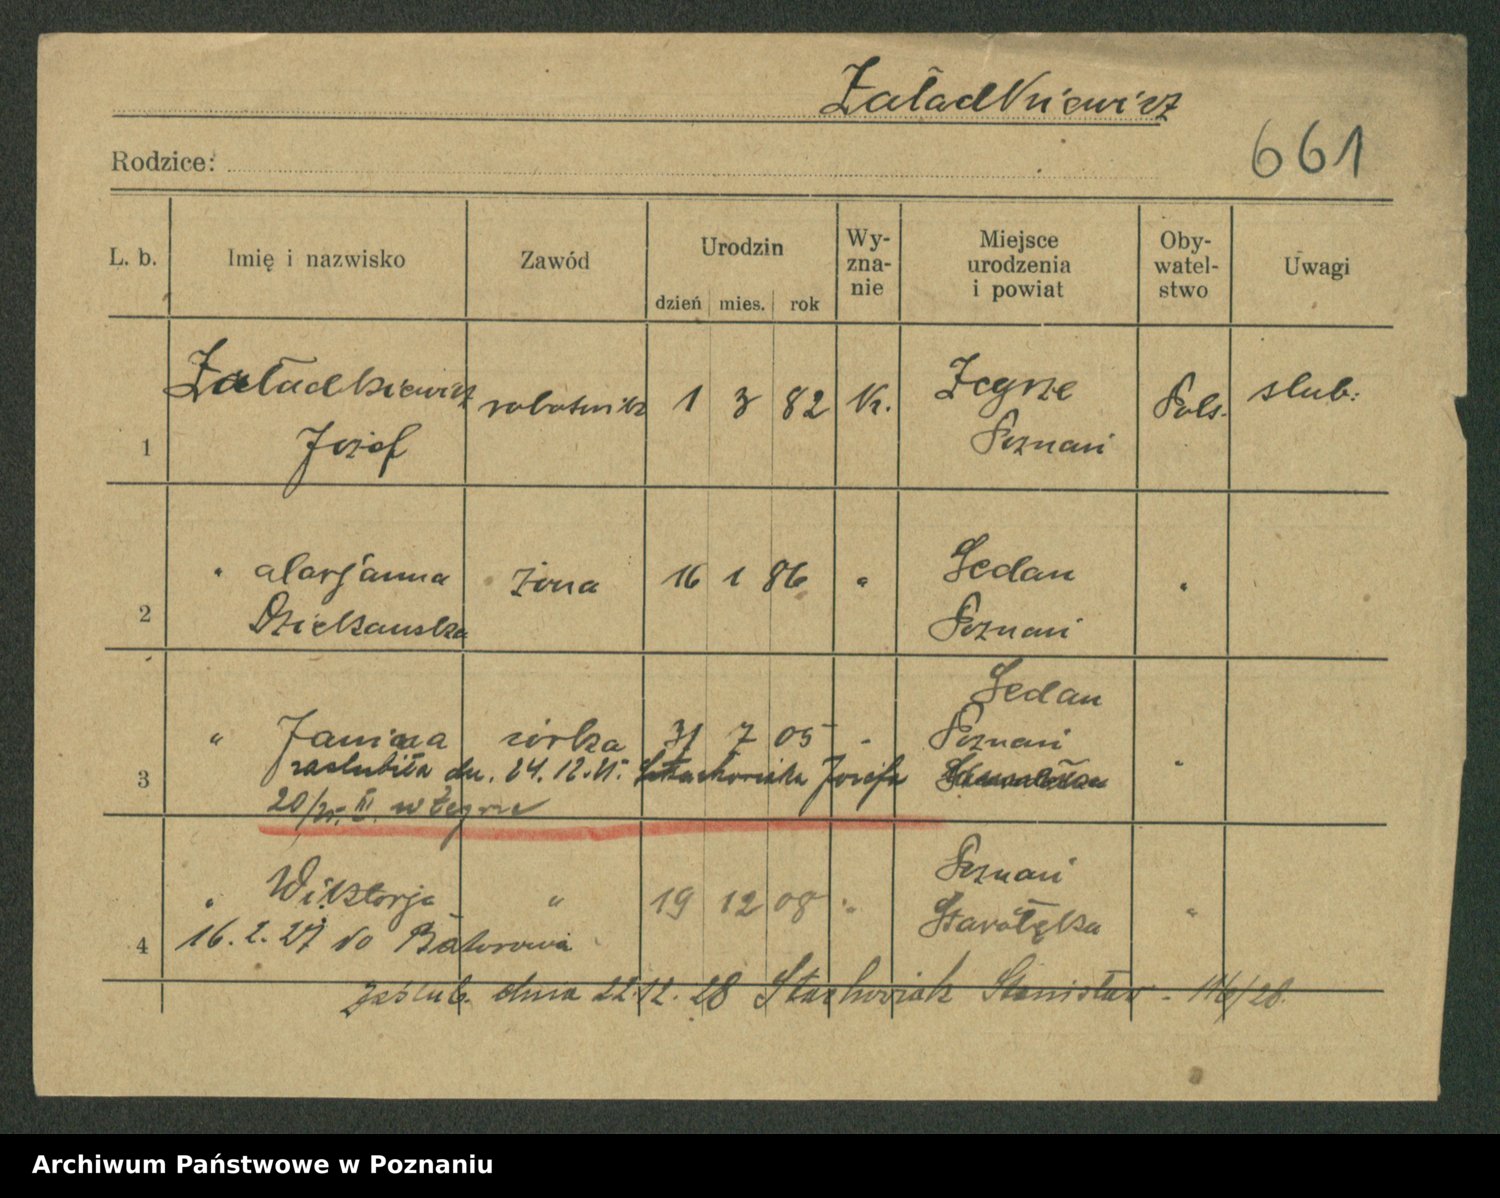 Załadkiewicz
661
Rodzice:
L. b. Imię i nazwisko Zawód Urodzin dzień mies. rok Wy-zna-nie Miejsce urodzenia i powiat Oby-watel-stwo Uwagi
Załadkiewicz robotnik 1 3 82 K. Zegrze Pols. slub:
1 Józef Poznań
" Marjanna żona 16 1 86 " Sedan "
2 Dziekańska Poznań
Sedan
" Janina córka 31 7 05 " Poznań "
3 zaslubiła dn. 24.12.25. Stachowiaka Józefa
w Żegrze
Poznań
" Wiktorja " 19 12 08 " Starołęka "
4 16.2.27 do Batorowa
zaślub. dnia 22.12.28 Stachowiak Stanisław -
Archiwum Państwowe w Poznaniu